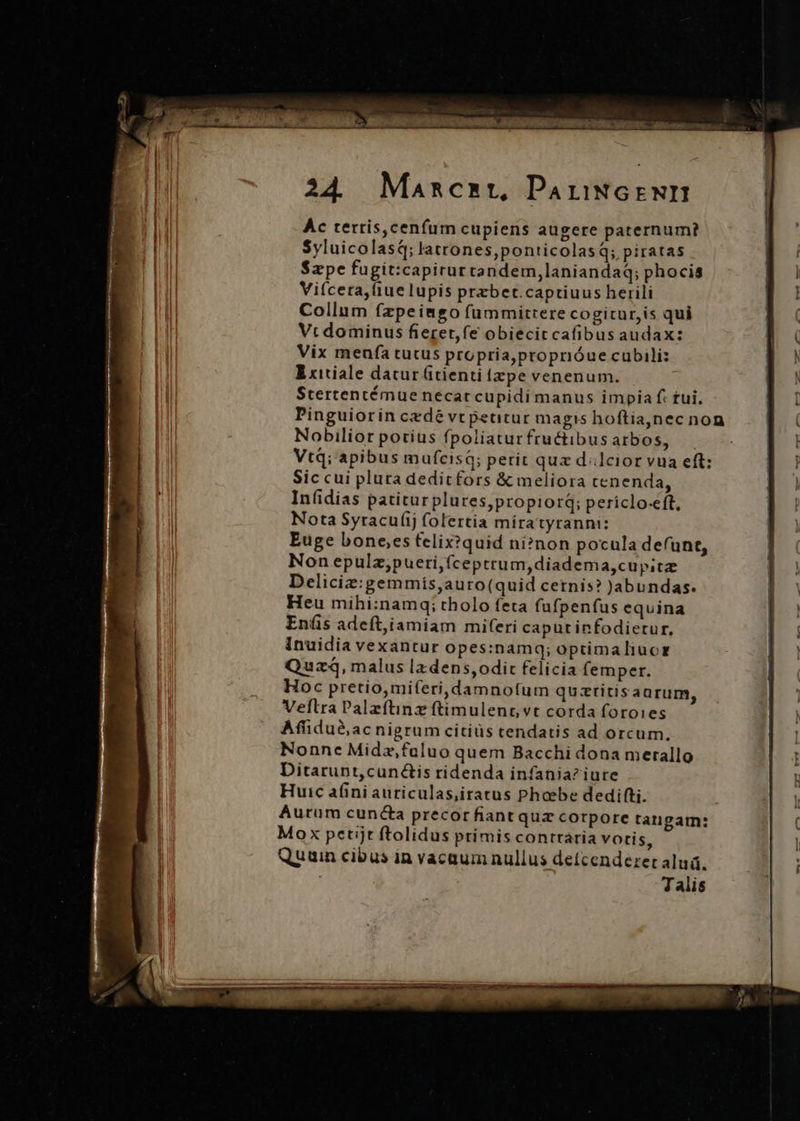 24 MARCEL, PALINGENII
Ac terris,cenſum cupiens augere paternum?
Syluicolasq́; latrones,ponticolasq́; piratas
Sæpe fugit:capitur tandem,laniandaq́; phocis
Viſcera,ſiue lupis præbet.captiuus herili
Collum ſæpe iugo ſummittere cogitur,is qui
Vt dominus fieret,ſe obiecit caſibus audax:
Vix menſa tutus propria,proprióue cubili:
Exitiale datur ſitienti ſæpe venenum.
Stertentémue necat cupidi manus impia ſerui.
Pinguior in cædẽ vt petitur magis hoſtia,nec non
Nobilior potius ſpoliatur fructibus arbos,
Vtq́; apibus muſcisq́; perit quæ dulcior vua eſt:
Sic cui plura dedit fors & meliora tenenda,
Inſidias patitur plures,propiorq́; periclo eſt.
Nota Syracuſij ſolertia mira tyranni:
Euge bone,es felix?quid ni?non pocula deſunt,
Non epulæ,pueri,ſceptrum,diadema,cupitæ
Deliciæ:gemmis,auro(quid cernis? )abundas.
Heu mihi:namq; tholo ſeta ſuſpenſus equina
Enſis adeſt,iamiam miſeri caput infodietur.
Inuidia vexantur opes:namq; optima liuor
Quæq́, malus lædens,odit felicia ſemper.
Hoc pretio,miſeri,damnoſum quæritis aurum,
Veſtra Palæſtinæ ſtimulent,vt corda ſorores
Aſſiduè,ac nigrum citiùs tendatis ad orcum.
Nonne Midæ,faluo quem Bacchi dona metallo
Ditarunt,cunctis ridenda inſania? iure
Huic aſini auriculas,iratus Phœbe dediſti.
Aurum cuncta precor fiant quæ corpore tangam:
Mox petijt ſtolidus primis contraria votis,
Quum cibus in vacuum nullus deſcenderet aluũ.
Talis